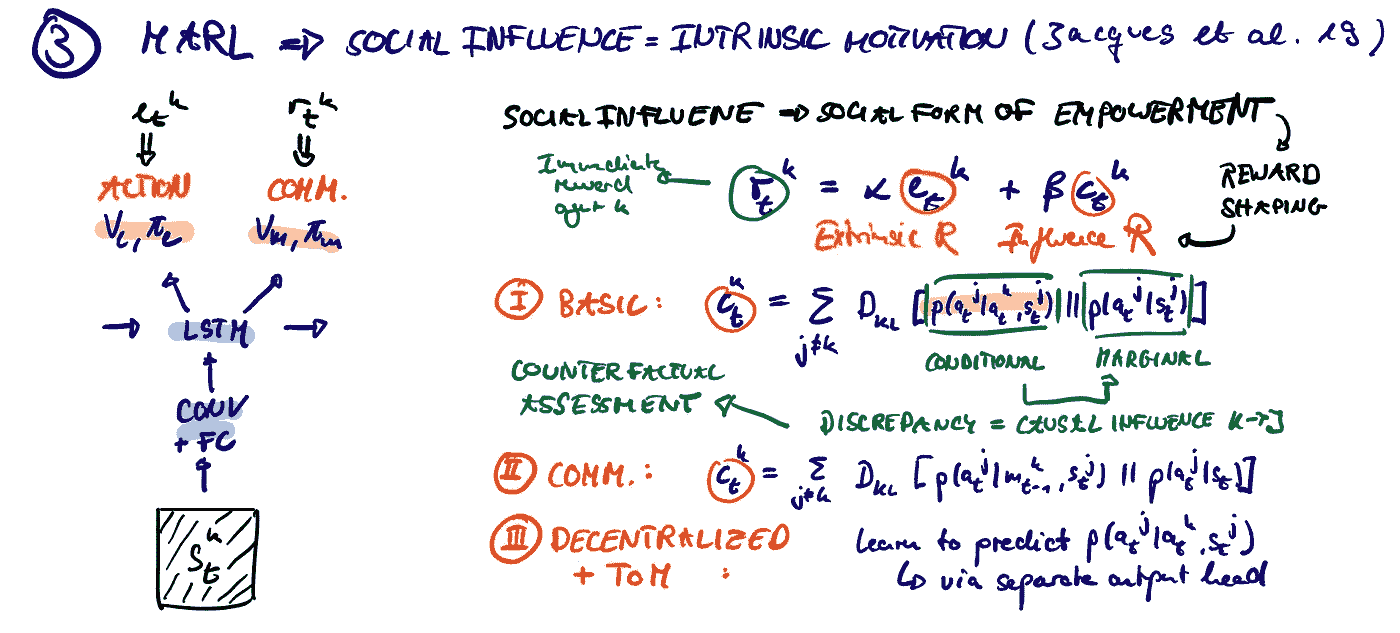 3 MARL => SOCIAL INFLUENCE = INTRINSIC MOTIVATION (Jacques et al. 19)
e_t^k
r_t^k
ACTION
COMM.
V_e, π_e
V_m, π_m
LSTM
CONV
+ FC
s_t^k
SOCIAL INFLUENE => SOCIAL FORM OF EMPOWERMENT
REWARD
SHAPING
Immediate
reward
agent k
r_t^k = α e_t^k + β c_t^k
Extrinsic R Influence R
I BASIC: c_t^k = Σ_{j≠k} D_KL [p(a_t^j | a_t^k, s_t^j) || p(a_t^j | s_t^j)]
CONDITIONAL MARGINAL
COUNTERFACTUAL
ASSESSMENT
DISCREPANCY = CAUSAL INFLUENCE K→J
II COMM.: c_t^k = Σ_{j≠k} D_KL [p(a_t^j | m_{t-1}^k, s_t^j) || p(a_t^j | s_t)]
III DECENTRALIZED
+ ToM :
learn to predict p(a_t^j | a_t^k, s_t^j)
↳ via separate output head